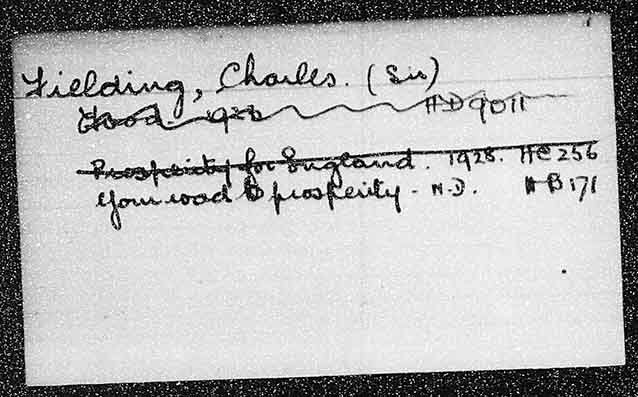 Fielding, Charles. (Sir)
Food. 1923 HD9011
Prosperity for England. 1928. HC256
Your road to prosperity - N.D. HB171